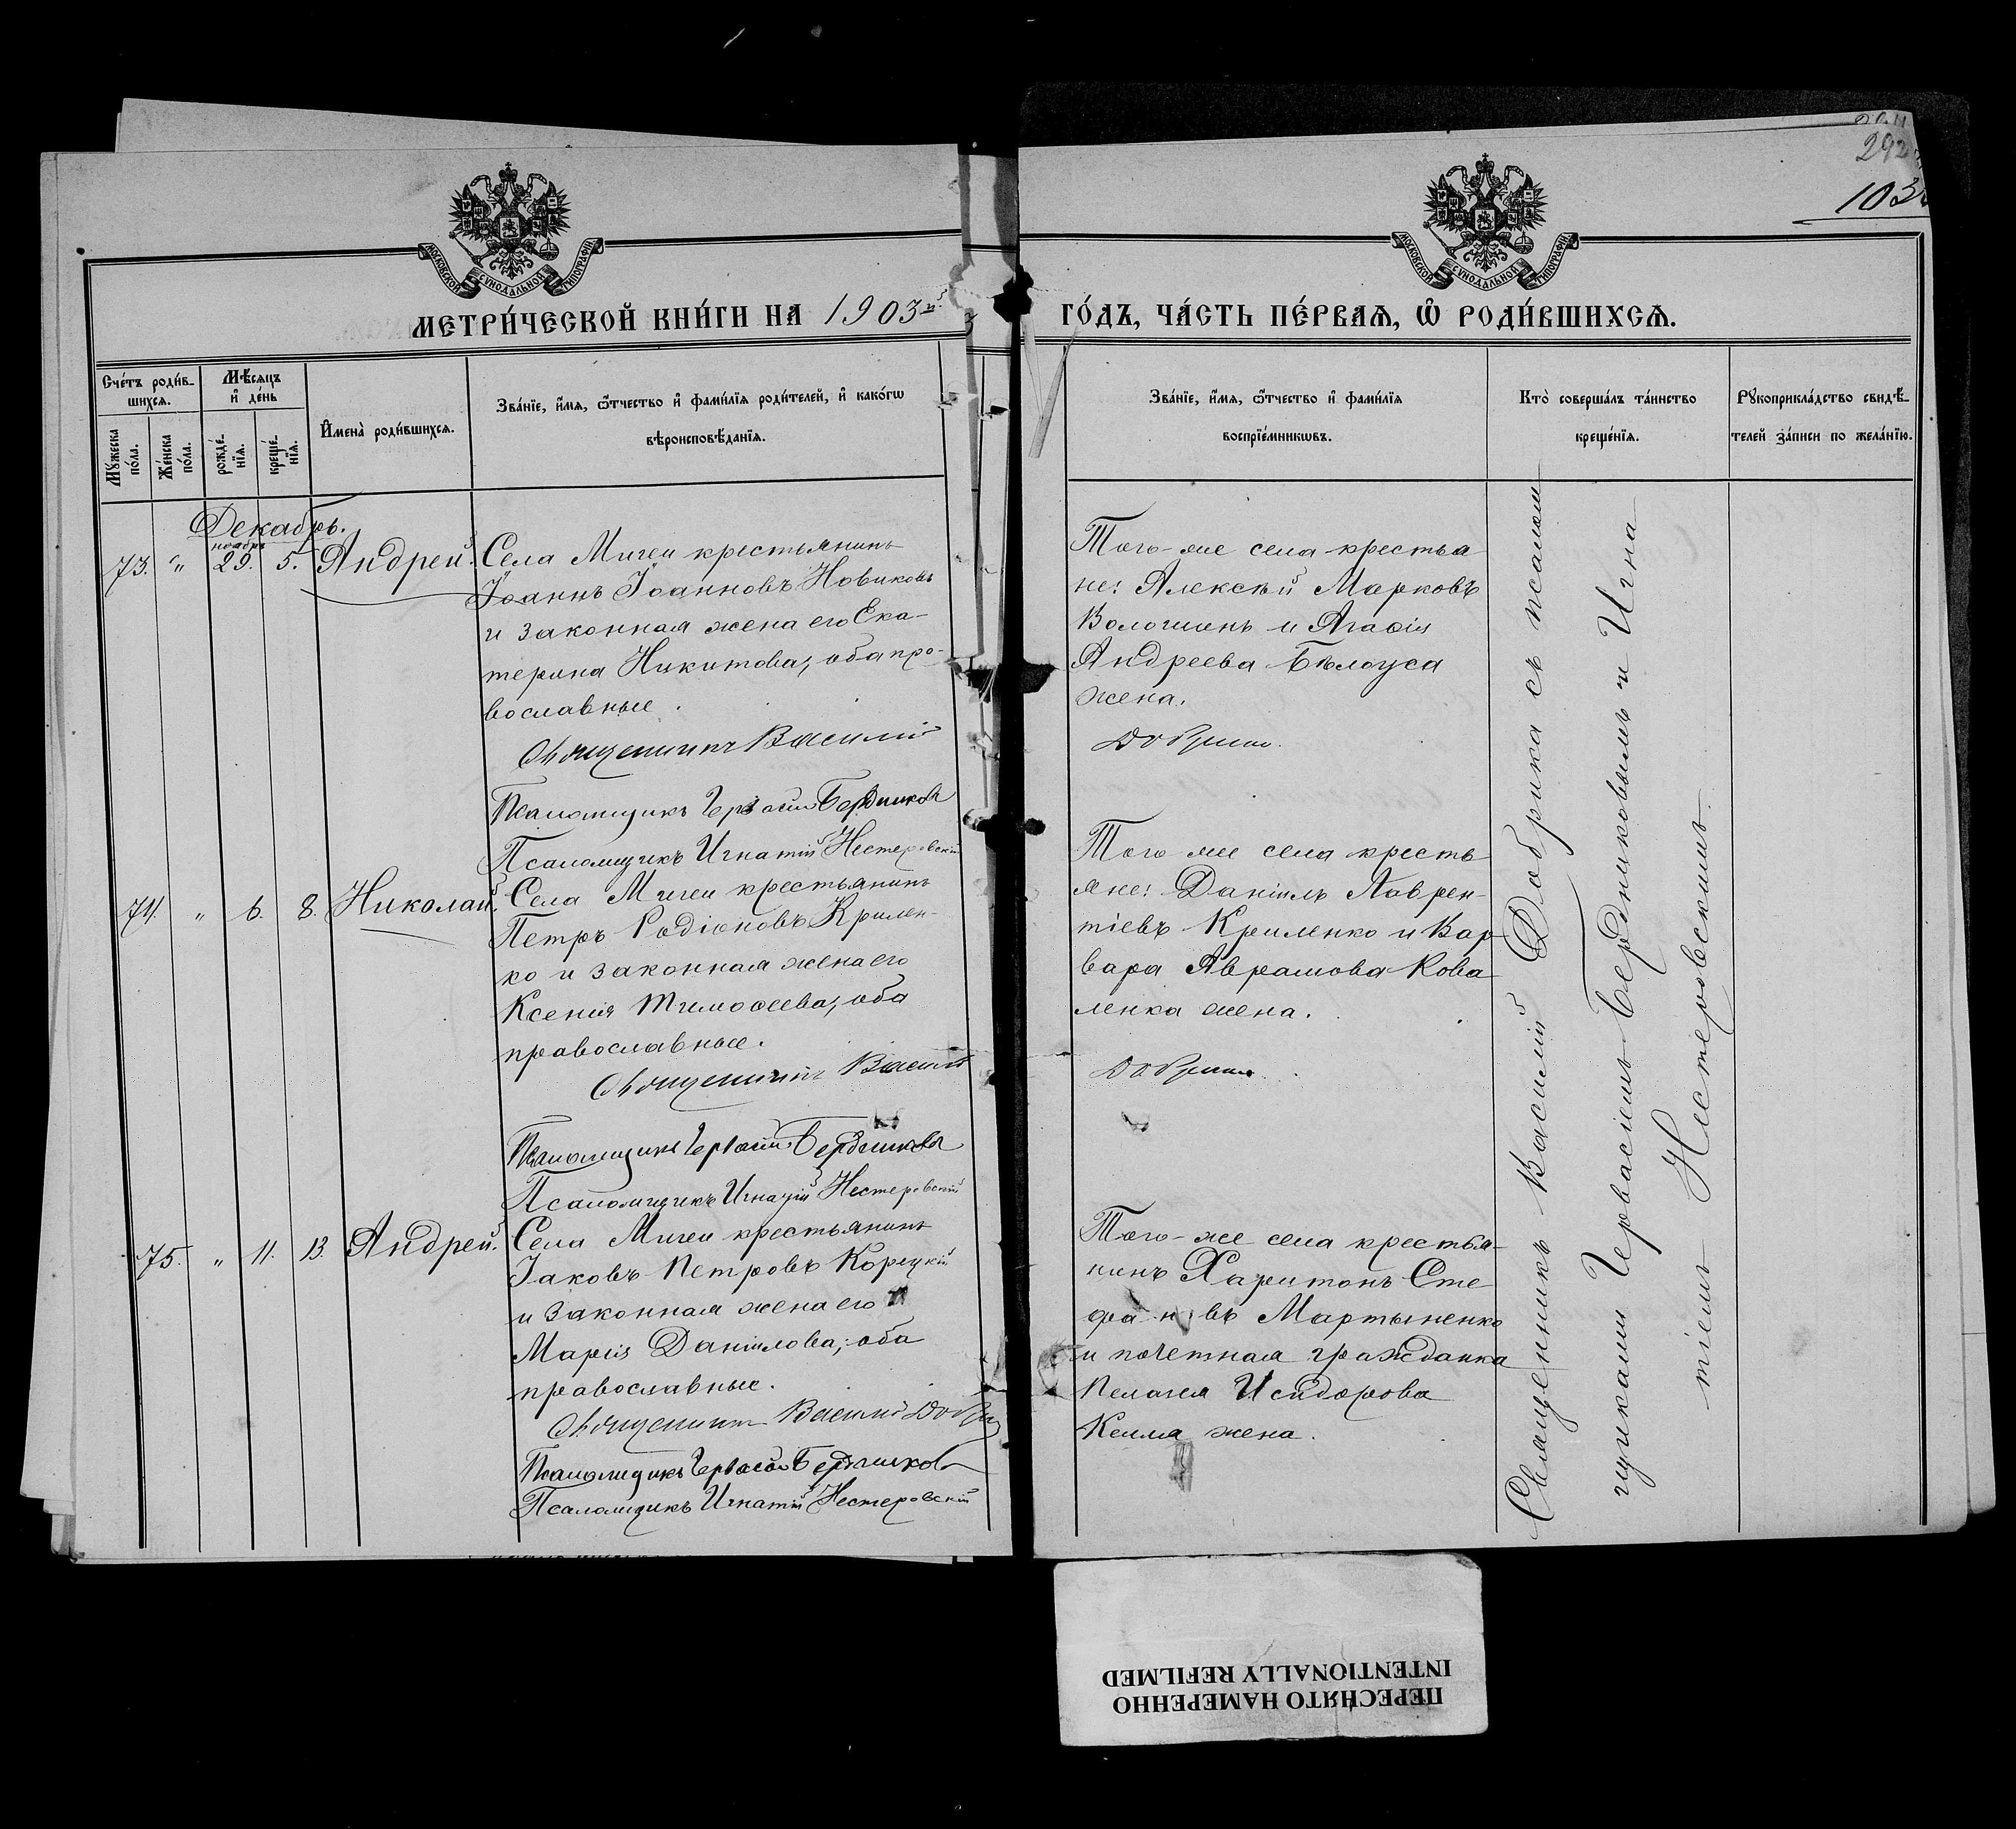 292
103
МОСКОВСКОЙ СѴНОДАЛЬНОЙ ТИПОГРАФІИ
МОСКОВСКОЙ СѴНОДАЛЬНОЙ ТИПОГРАФІИ
МЕТРИ́ЧЕСКОЙ КНИ́ГИ НА 1903й
ГО́ДЪ, ЧА́СТЬ ПЕ́РВАѦ, Ѡ҆ РОДИ́ВШИХСѦ.
Сче́тъ роди́в-
шихсѧ.
Мꙋ́жеска по́ла.
Же́нска по́ла.
Мѣ́сѧцъ
и҆ де́нь
рожде́-
нїѧ.
креще́-
нїѧ.
И҆мена̀ роди́вшихсѧ.
Зва́нїе, и҆́мѧ, ѻ҆́тчество и҆ фами́лїѧ роди́телей, и҆ како́гѡ
вѣроисповѣ́данїѧ.
Зва́нїе, и҆́мѧ, ѻ҆́тчество и҆ фами́лїѧ
воспрїе́мникѡвъ.
Кто̀ соверша́лъ та́инство
креще́нїѧ.
Рꙋкоприкла́дство свидѣ́-
телей за́писи по жела́нїю.
Декабрь.
ноябрь
73. " 29. 5. Андрей.
Села Мигеи крестьянинъ
Іоаннъ Іоанновъ Новиковъ
и законная жена его Ека-
терина Никитова, оба пра-
вославные.
Священникъ Василій
Псаломщикъ Герасій Бердниковъ
Псаломщикъ Игнатій Нестеровскій
Того-же села крестья
не: Алексѣй Марковъ
Волошинъ и Агафія
Андреева Бѣлоуса
жена.
Добрика.
74. " 6. 8. Николай.
Села Мигеи крестьянинъ
Петръ Родіоновъ Крилен-
ко и законная жена его
Ксенія Тимофеева, оба
православные.
Священникъ Василій
Псаломщикъ Герасій Бердниковъ
Псаломщикъ Игнатій Нестеровскій
Того же села кресть
яне: Даніилъ Лаврен-
тіевъ Криленко и Вар
вара Аврамова Кова
ленка жена.
Добрика.
75. " 11. 13 Андрей.
Села Мигеи крестьянинъ
Іаковъ Петровъ Корецкій
и законная жена его
Марія Даніилова, оба
православные.
Священникъ Василій Добри
Псаломщикъ Герасій Бердниковъ
Псаломщикъ Игнатій Нестеровскій
Того-же села крестья-
нинъ Харитонъ Сте
фановъ Мартыненко
и почетная гражданка
Пелагея Исидорова
жена.
Священникъ Василій Добрика съ псалом
щиками Гервасіемъ Бердниковымъ и Игна
тіемъ Нестеровскимъ.
ПЕРЕСНЯТО НАМЕРЕННО
INTENTIONALLY REFILMED